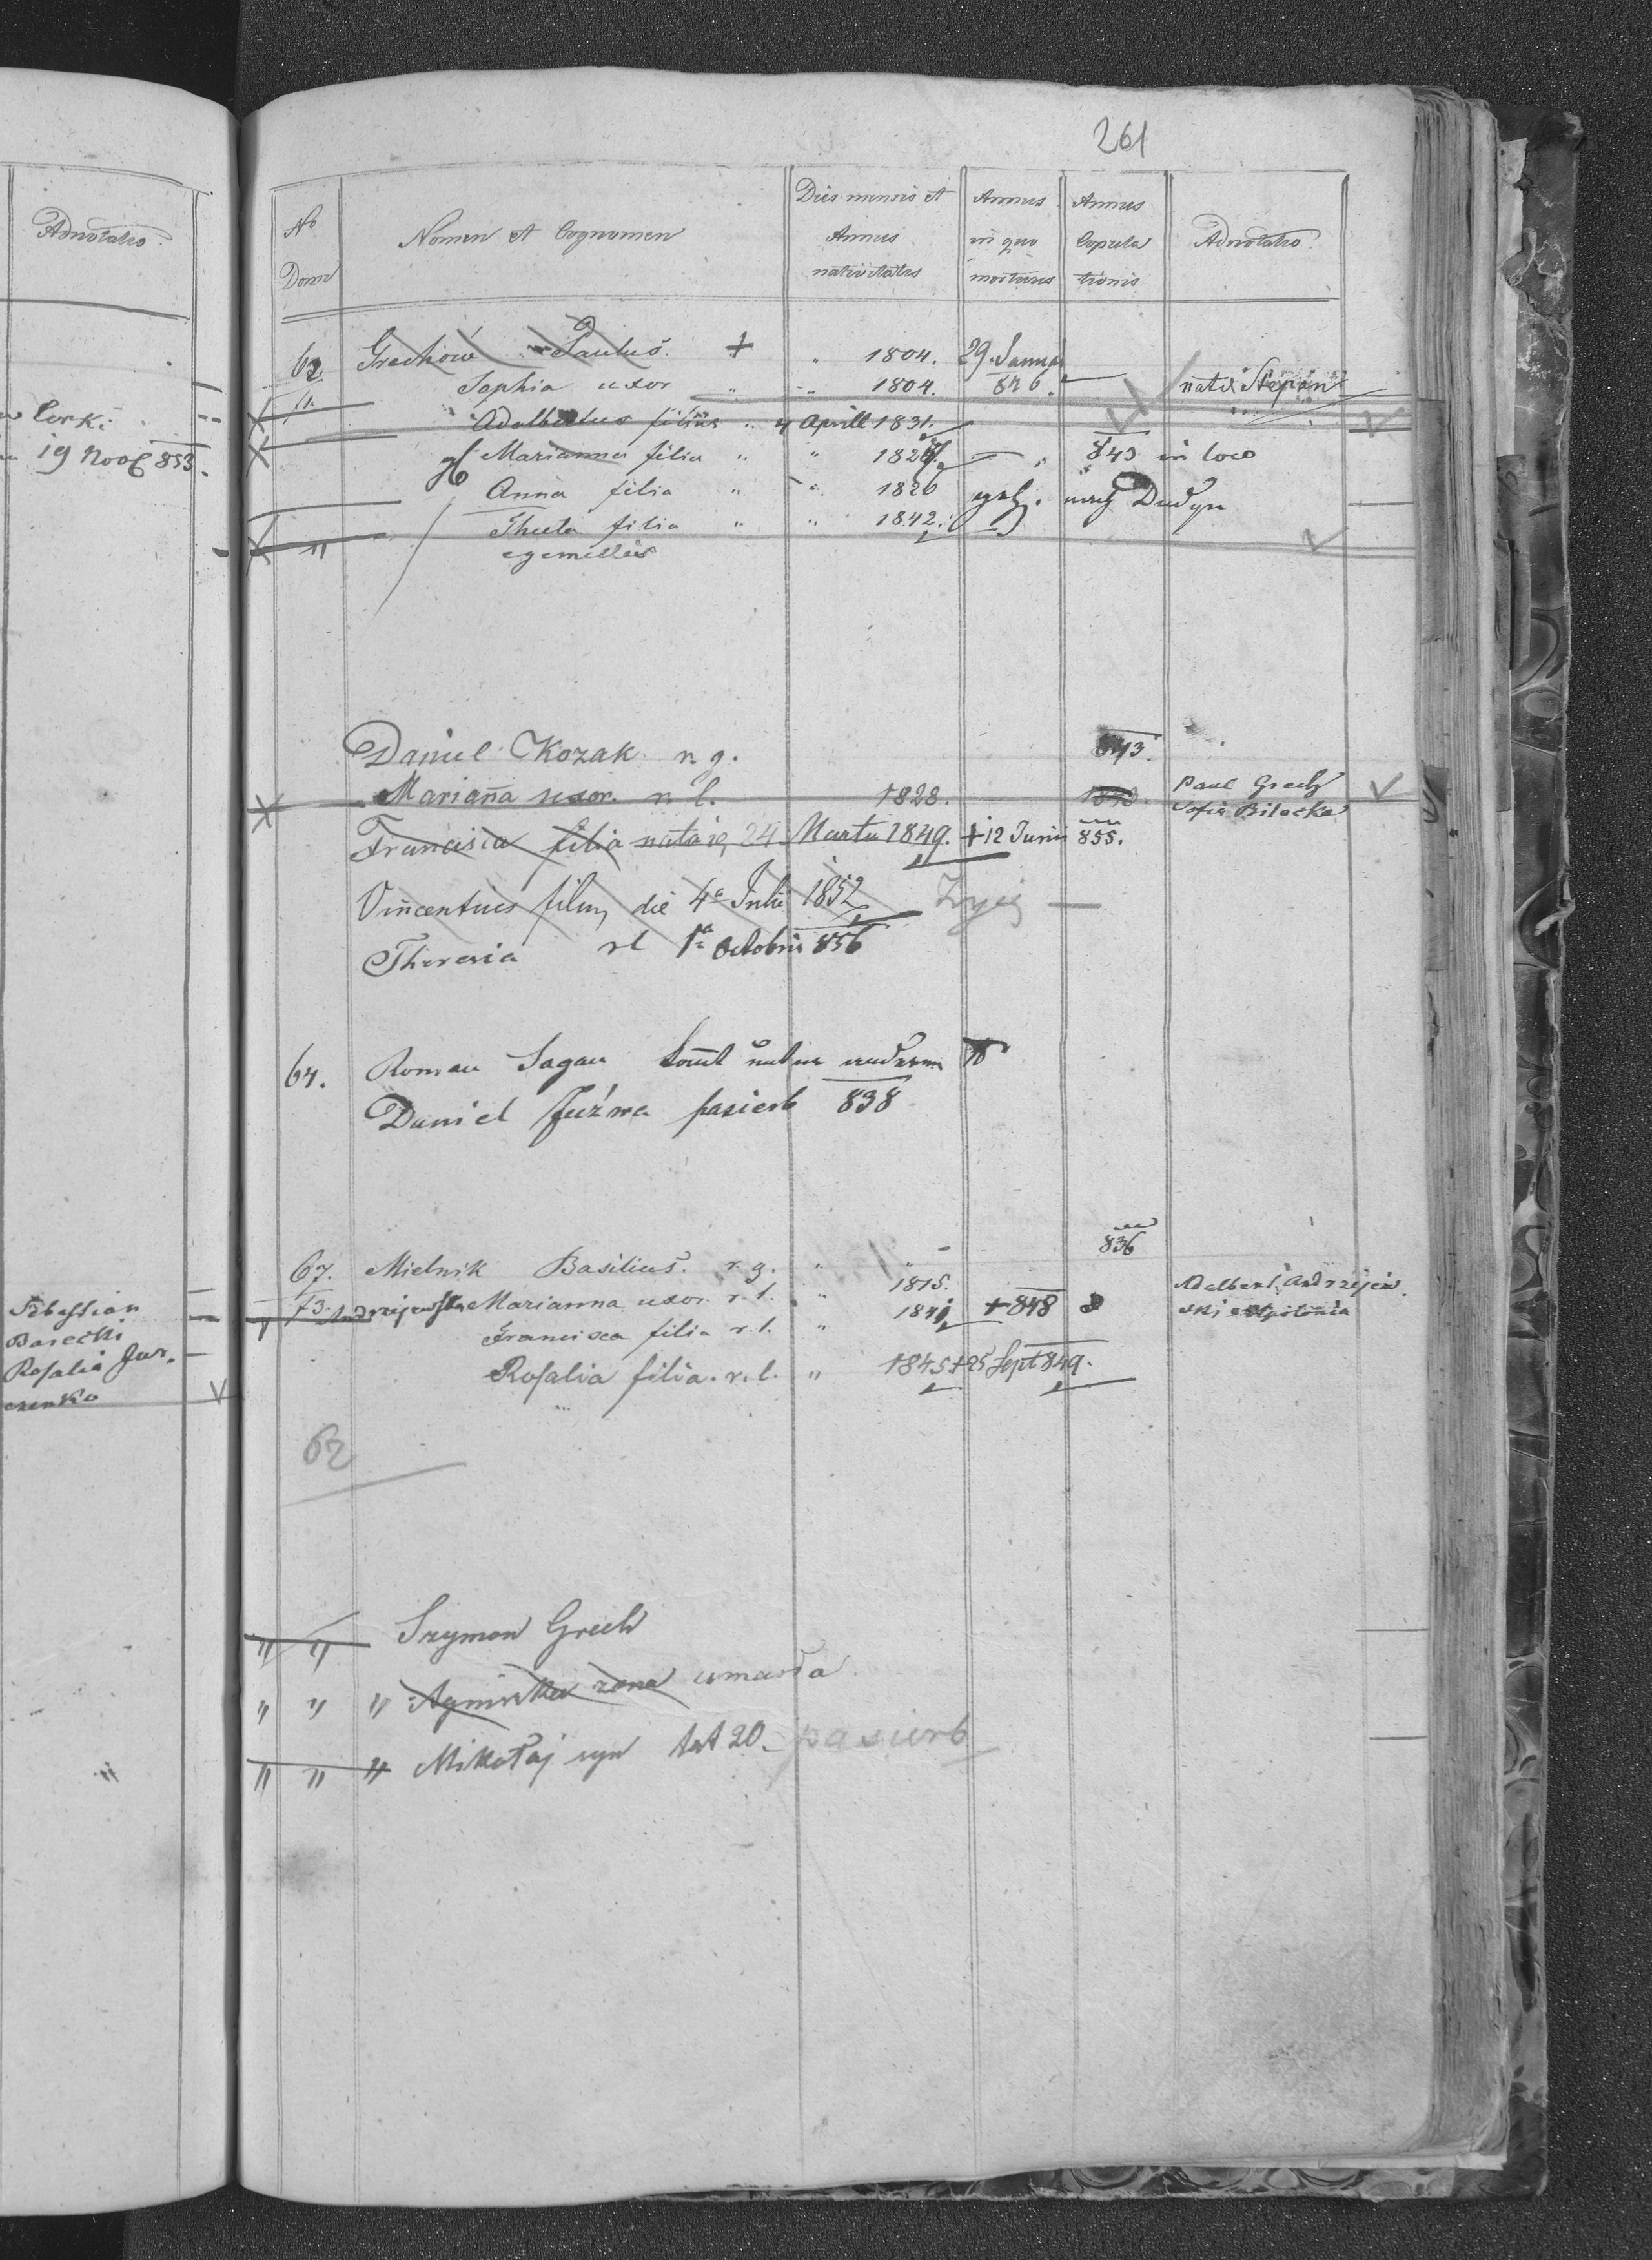 261
Adnotatio
Corki
19 Nov 853.
Sebastian
Barecki
Rosalia Jur.
czenko
No Domo
Nomen et Cognomen
Dies mensis et Annus nativitatis
Annus in quo mortuus
Annus Copulationis
Adnotatio
62 Grechow Paulus. + " 1804. 29. Janua
Sophia uxor " " 1804. 846. nata Stepan
Adalbertus filius " 4 Aprill 1831.
Marianna filia " " 1828. " 843 in loco
Anna filia " " 1826 nach Dudyn
Thecla filia " " 1842.
" gemellis
Daniel Kozak r. g. 843.
Marianna uxor. r. l. 1828. 1843. Paul Grech
Sofia Bilecka
Francisca filia nata 24 Martii 1849. + 12 Junii 855.
Vincentius filius die 4a Julii 1852 Zyje
Theresia rl 1a Octobris 856
64. Roman Sagan
Daniel Juźwa pasierb 838
836
67. Mielnik Basilius. r. g. " "
73. Andrzejewska Marianna uxor. r. l. " 1815. Adalbert Andrzejew
Francisca filia r. l. " 1841 + 848 ski Apolonia
Rosalia filia. r. l. " 1845 + 25 Sept 849.
62
" " Szymon Grech
" " " Agnieszka żona umarła
" " " Mikołaj syn lat 20. pasierb